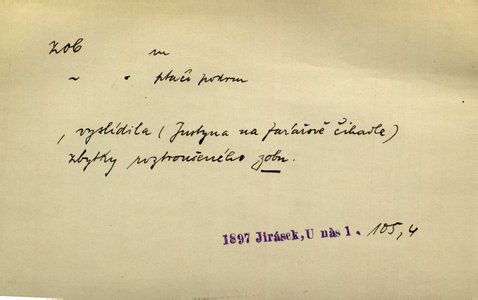 zob m
~ • ptačí podrm
, vyslídila (Justyna na farářově čihadle)
zbytky roztroušeného zobu.
1897 Jirásek, U nás 1. 105,4